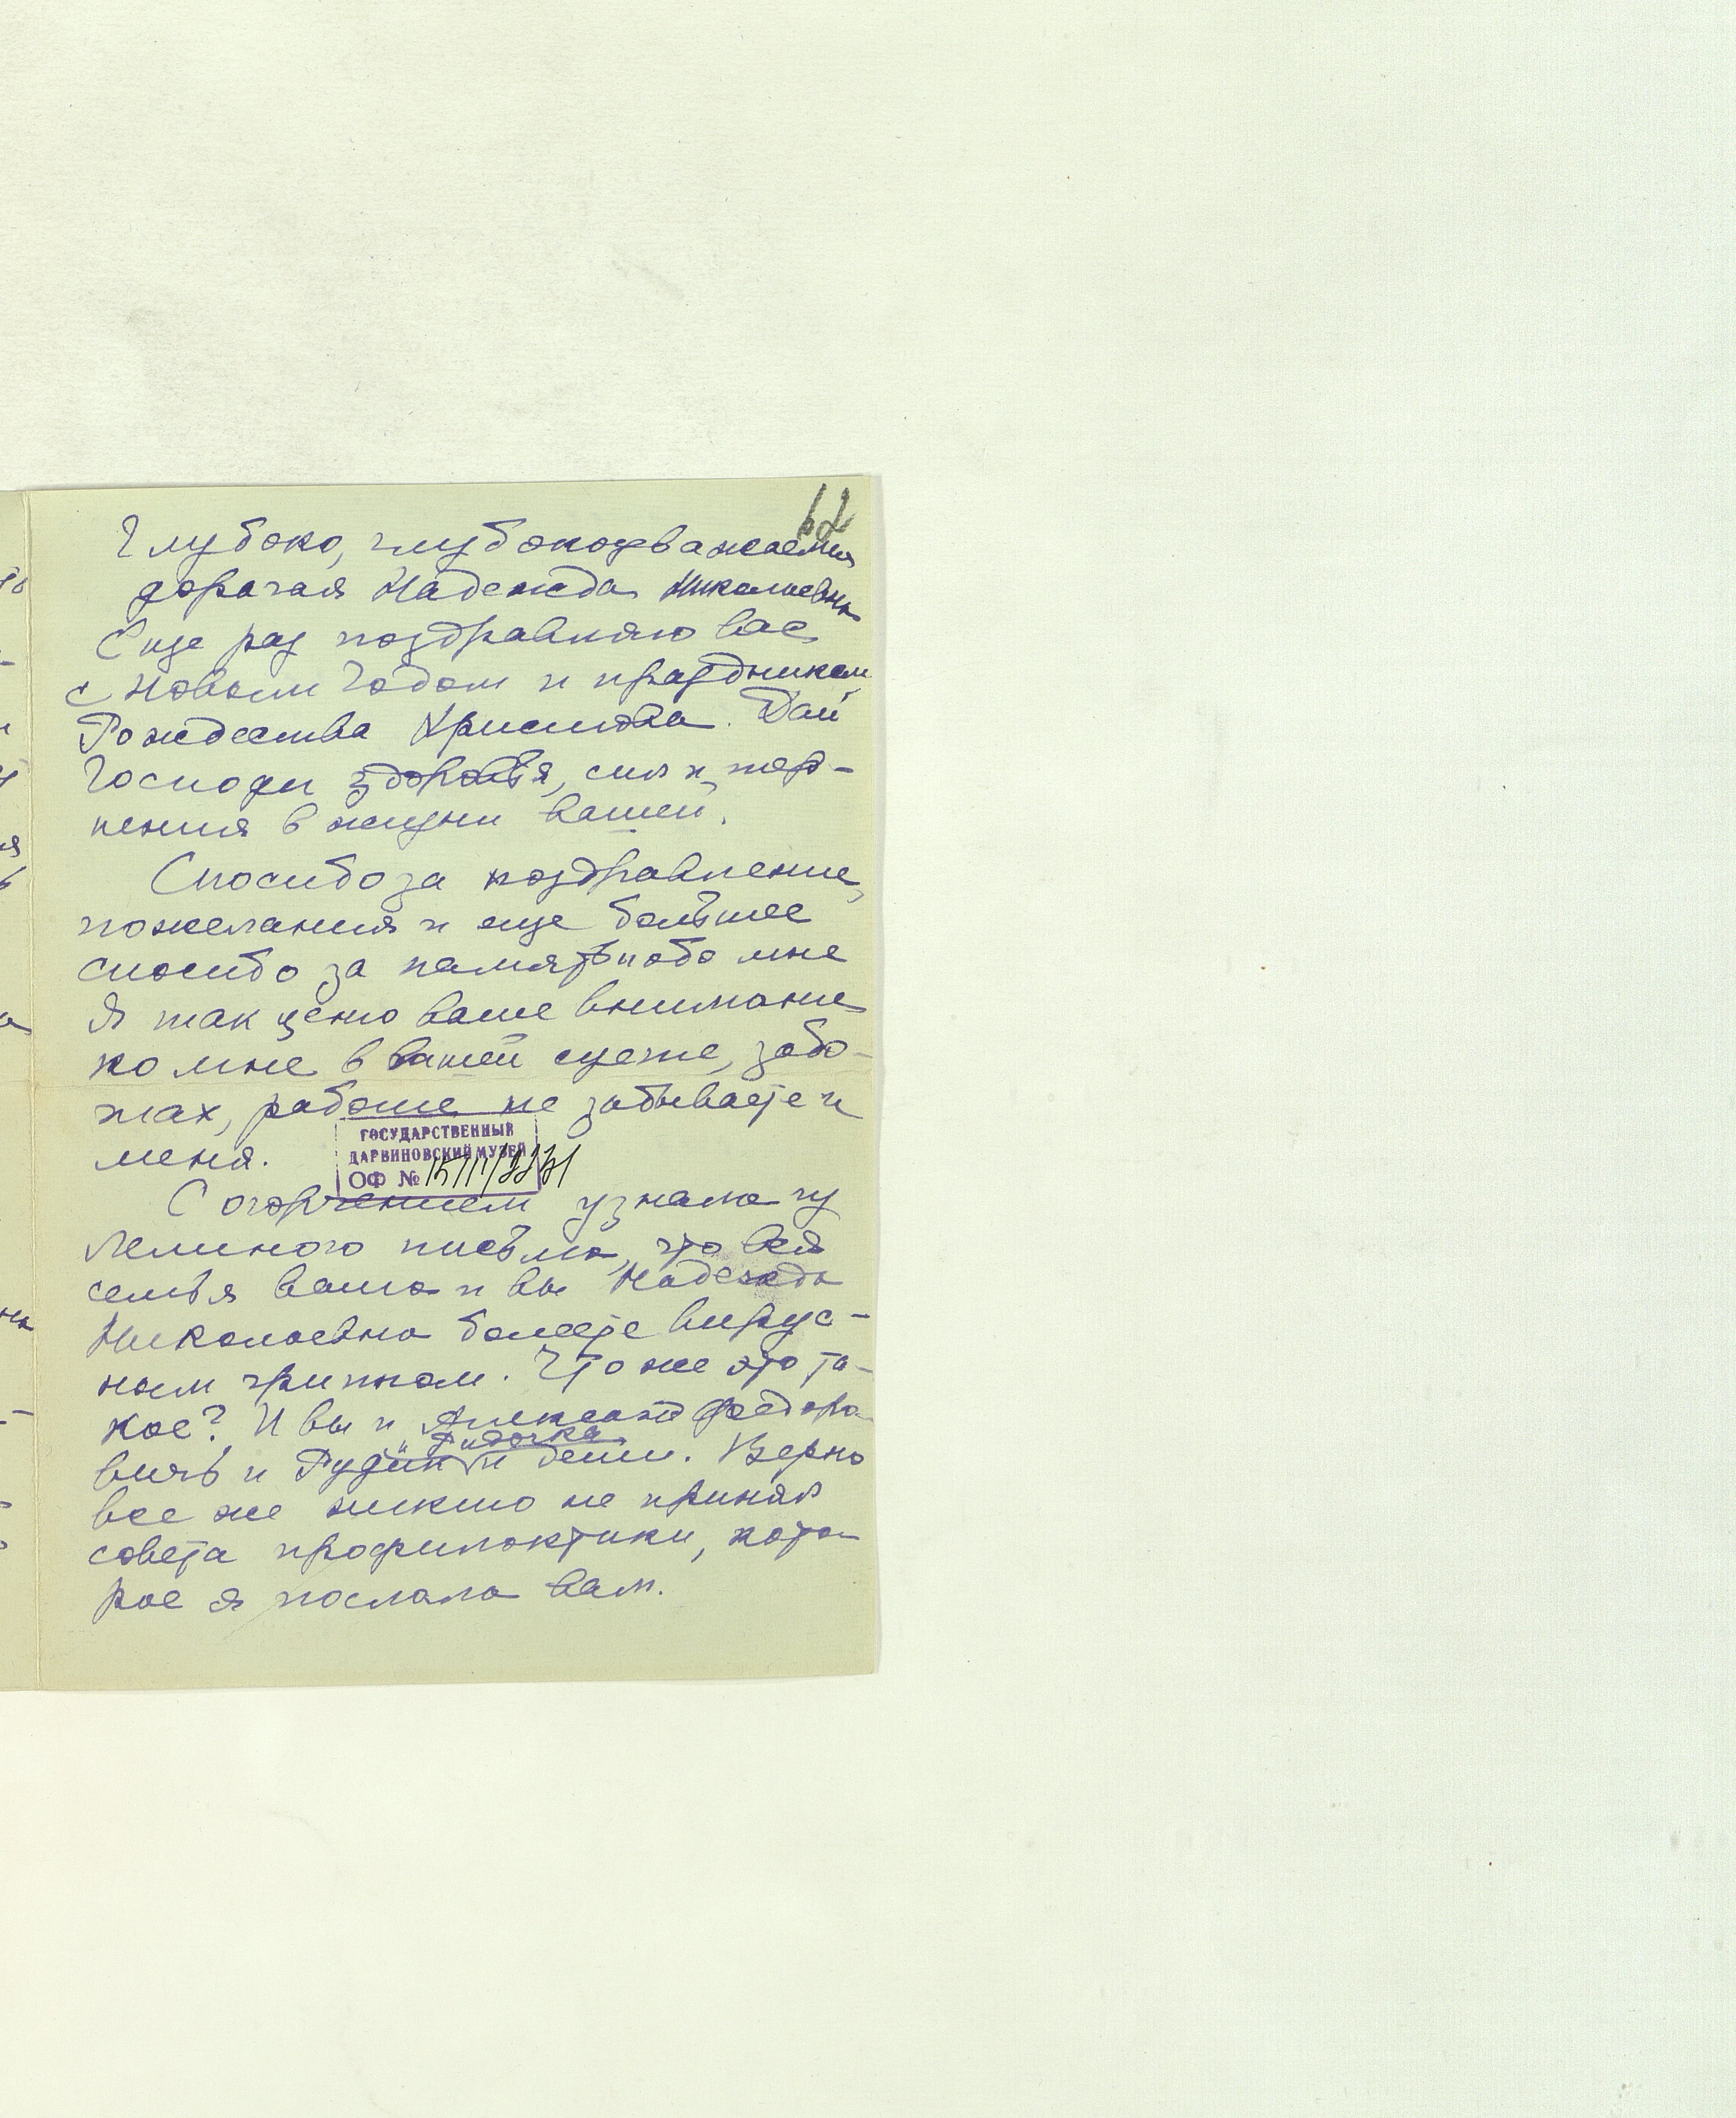 62
Глубоко, глубокоуважаемая
дорогая Надежда Николаевна
Еще раз поздравляю вас
с Новым Годом и праздником
Рождества Христова. Дай
Господи здоровья, сил и тер-
пения в жизни вашей.
Спасибо за поздравление,
пожелания и еще большее
спасибо за память обо мне
Я так ценю ваше внимание
ко мне в вашей суете, забо-
тах, работе не забываете и
меня.
ГОСУДАРСТВЕННЫЙ
ДАРВИНОВСКИЙ МУЗЕЙ
ОФ №
С огорчением узнала из
Лелиного письма, что вся
семья ваша и вы Надежда
Николаевна болеете вирус-
ным гриппом. Что же это та-
кое? И вы и Александр Федоро-
вичь и Рудик и дети. Верно
все же никто не принял
совета профилактики, кото-
рое я послала вам.